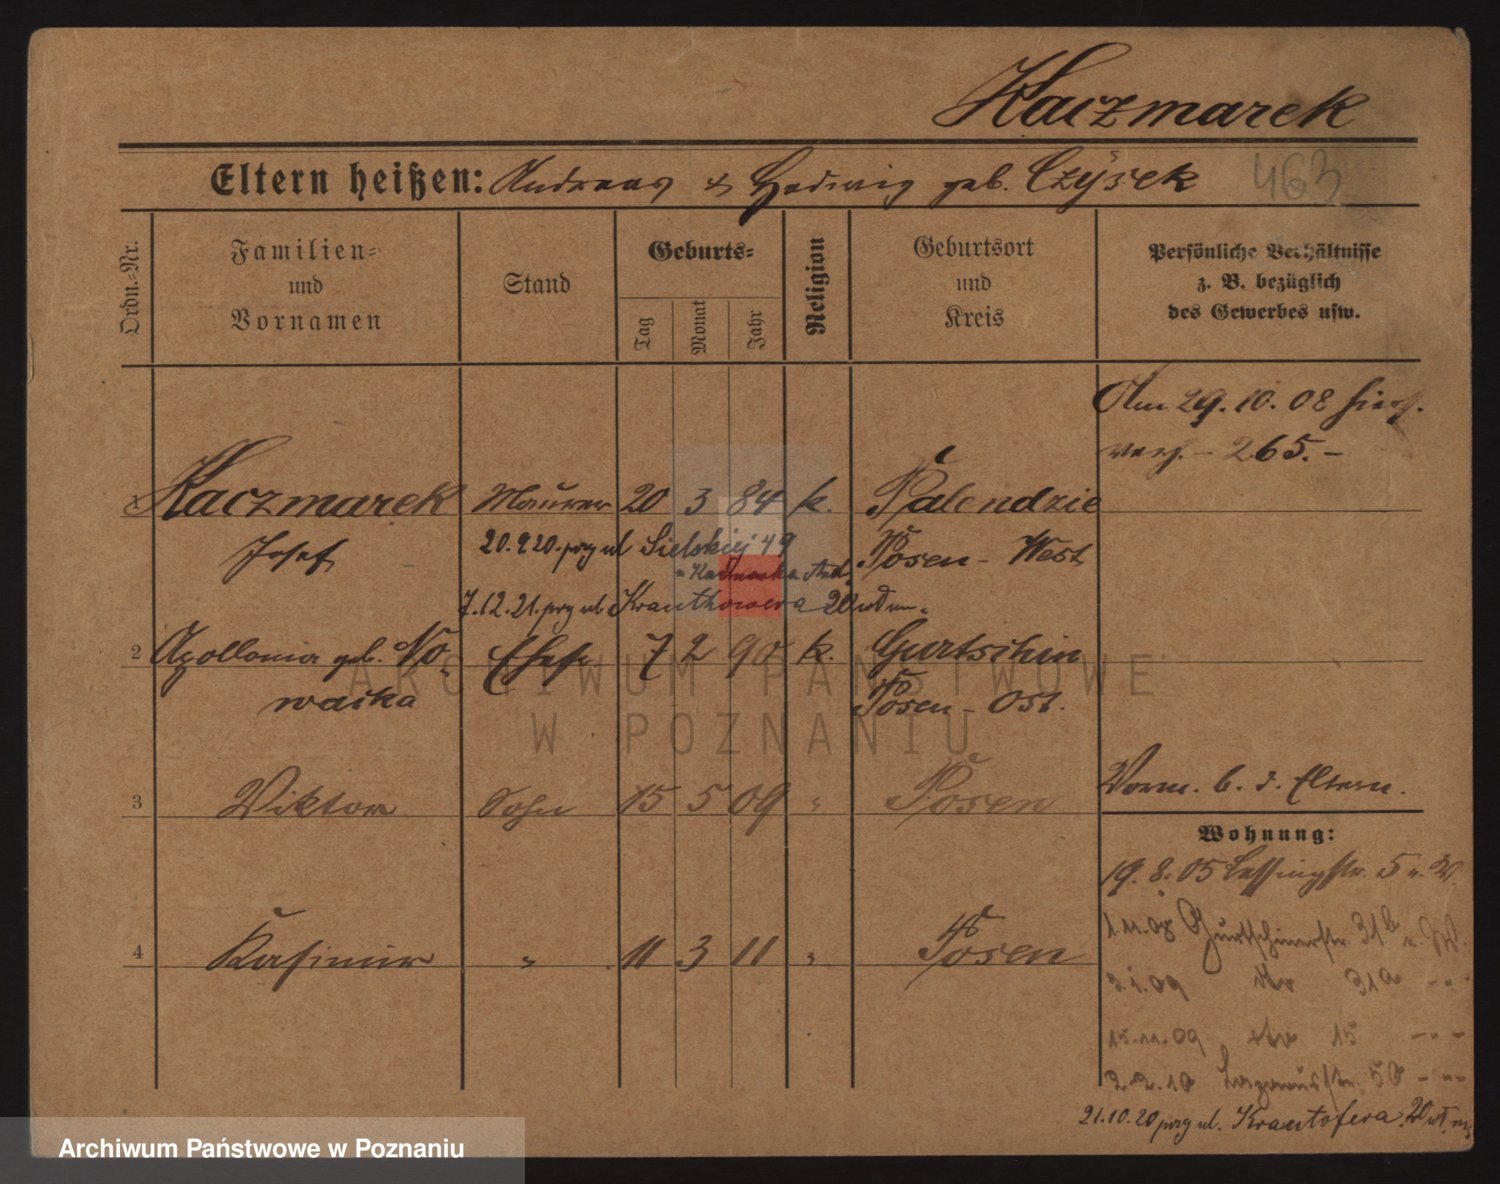 Kaczmarek
Eltern heißen: Andreas & Hedwig geb. Czysek 463
Ordn.-Nr.
Familien-
und
Vornamen
Stand
Geburts-
Tag
Monat
Jahr
Religion
Geburtsort
und
Kreis
Persönliche Verhältnisse
z. B. bezüglich
des Gewerbes usw.
Am 29.10.08 hier
265.-
Kaczmarek Maurer 20 3 84 k. Palendzie
Josef
Posen - West
20.9.20. przy ul Sielskiej 49
7.12.21. przy ul Krauthofera 20
2 Apollonia geb. No- Ehefr 7 2 90 k. Gurtschin
waicka Posen - Ost.
3 Viktor Sohn 15 5 09 " Posen
Vorm. b. d. Eltern.
Wohnung:
19.8.05 Lessingstr. 5 W.
1.11.08 Gurtschinerstr. 31b W.
4 Kasimir " 11 3 11 " Posen
2.1.09 31a
15.11.09 15
2.2.10 Lazarusstr. 50
21.10.20 przy ul. Krautofera 20
ARCHIWUM PAŃSTWOWE
W POZNANIU
Archiwum Państwowe w Poznaniu